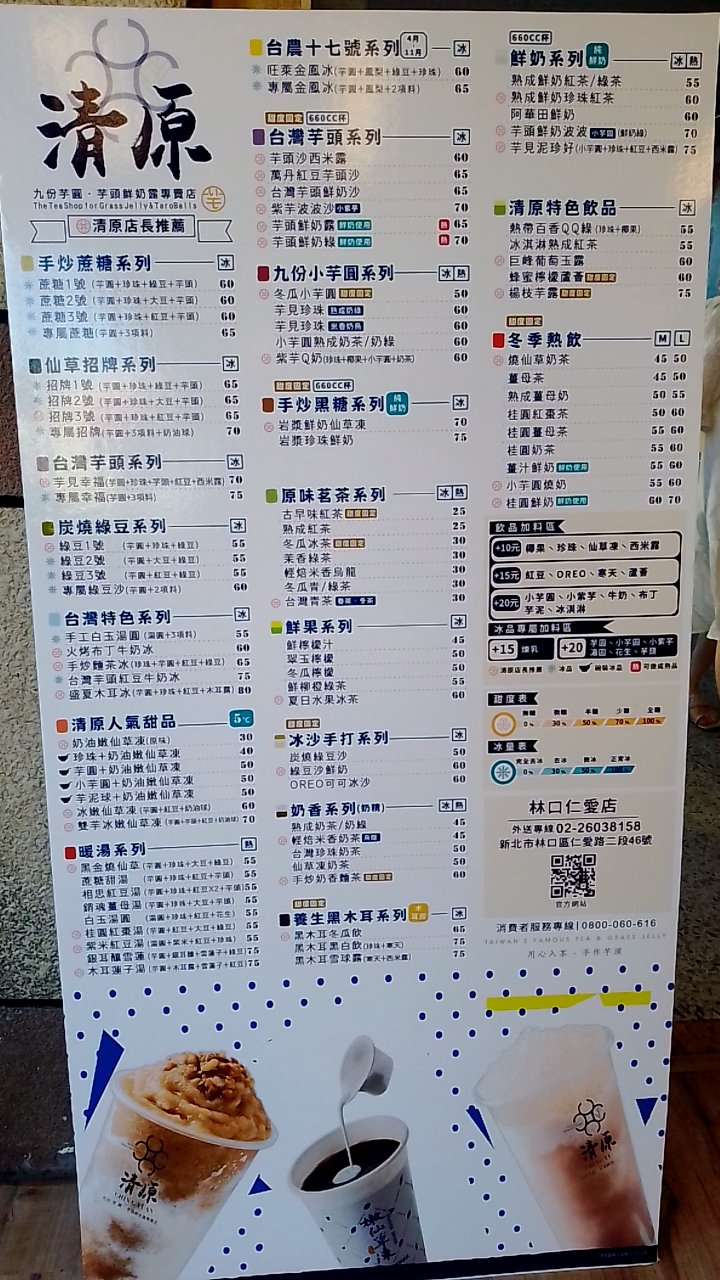 清原
九份芋圓・芋頭鮮奶露專賣店
The Tea Shop for Grass Jelly & Taro Balls
清原店長推薦
手炒蔗糖系列 冰
蔗糖1號 (芋圓+珍珠+綠豆+芋頭) 60
蔗糖2號 (芋圓+珍珠+大豆+芋頭) 60
蔗糖3號 (芋圓+珍珠+紅豆+芋頭) 60
專屬蔗糖(芋圓+3項料) 65
仙草招牌系列 冰
招牌1號 (芋圓+珍珠+綠豆+芋頭) 65
招牌2號 (芋圓+珍珠+大豆+芋頭) 65
招牌3號 (芋圓+珍珠+紅豆+芋頭) 65
專屬招牌(芋圓+3項料+奶油球) 70
台灣芋頭系列 冰
芋見幸福(芋圓+珍珠+芋頭+紅豆+西米露) 70
專屬幸福(芋圓+3項料) 75
炭燒綠豆系列 冰
綠豆1號 (芋圓+珍珠+綠豆) 55
綠豆2號 (芋圓+大豆+綠豆) 55
綠豆3號 (芋圓+紅豆+綠豆) 55
專屬綠豆沙(芋圓+2項料) 60
台灣特色系列 冰
手工白玉湯圓 (湯圓+3項料) 55
火烤布丁牛奶冰 60
手炒麵茶冰(珍珠+芋圓+紅豆+綠豆) 65
台灣芋頭紅豆牛奶冰 75
盛夏木耳冰(芋圓+珍珠+紅豆+木耳露) 80
清原人氣甜品 5℃
奶油嫩仙草凍(原味) 30
珍珠+奶油嫩仙草凍 40
芋圓+奶油嫩仙草凍 50
小芋圓+奶油嫩仙草凍 50
芋泥球+奶油嫩仙草凍 50
冰嫩仙草凍(芋圓+紅豆+奶油球) 60
雙芋冰嫩仙草凍 70
暖湯系列 熱
黑金燒仙草(芋圓+珍珠+大豆+綠豆) 55
蔗糖甜湯 (芋圓+珍珠+紅豆+芋頭) 55
相思紅豆湯(芋圓+珍珠+紅豆X2+芋頭) 55
銷魂薑母湯(芋圓+珍珠+大豆+芋頭) 55
白玉湯圓 (湯圓+珍珠+紅豆+花生) 55
桂圓紅棗湯(芋圓+紅豆+大豆+綠豆) 55
紫米紅豆湯(湯圓+紫米+紅豆+珍珠) 55
銀耳釀雪蓮 75
木耳蓮子湯(芋圓+木耳露+雪蓮子+紅豆) 75
台農十七號系列 4月-11月 冰
旺萊金鳳冰(芋圓+鳳梨+綠豆+珍珠) 60
專屬金鳳冰(芋圓+鳳梨+2項料) 65
甜度固定 660CC杯
台灣芋頭系列 冰
芋頭沙西米露 60
萬丹紅豆芋頭沙 65
台灣芋頭鮮奶沙 65
紫芋波波沙 小紫芋 70
芋頭鮮奶露 鮮奶使用 熱 65
芋頭鮮奶綠 鮮奶使用 熱 70
九份小芋圓系列 冰 熱
冬瓜小芋圓 甜度固定 50
芋見珍珠 熟成奶綠 60
芋見珍珠 米香奶烏 60
小芋圓熟成奶茶/奶綠 60
紫芋Q奶(珍珠+椰果+小芋圓+奶茶) 60
甜度固定 660CC杯
手炒黑糖系列 純鮮奶 冰
岩漿鮮奶仙草凍 70
岩漿珍珠鮮奶 75
原味茗茶系列 冰 熱
古早味紅茶 甜度固定 25
熟成紅茶 25
冬瓜冰茶 甜度固定 30
茉香綠茶 30
輕焙米香烏龍 30
冬瓜青/綠茶 30
台灣青茶 30
鮮果系列 冰
鮮檸檬汁 45
翠玉檸檬 50
冬瓜檸檬 50
鮮柳橙綠茶 55
夏日水果冰茶 60
甜度固定
冰沙手打系列 冰
炭燒綠豆沙 50
綠豆沙鮮奶 60
OREO可可冰沙 60
奶香系列(奶精) 冰 熱
熟成奶茶/奶綠 45
輕焙米香奶茶 45
台灣珍珠奶茶 50
仙草凍奶茶 50
手炒奶香麵茶 甜度固定 60
甜度固定
養生黑木耳系列 冰
黑木耳冬瓜飲 65
黑木耳黑白飲(珍珠+寒天) 75
黑木耳雪球露(寒天+西米露) 75
660CC杯
鮮奶系列 純鮮奶 冰 熱
熟成鮮奶紅茶/綠茶 55
熟成鮮奶珍珠紅茶 60
阿華田鮮奶 60
芋頭鮮奶波波 小芋圓 (鮮奶綠) 70
芋見泥珍好(小芋圓+珍珠+紅豆+西米露) 75
清原特色飲品 冰
熱帶百香QQ綠 (珍珠+椰果) 55
冰淇淋熟成紅茶 55
巨峰葡萄玉露 60
蜂蜜檸檬蘆薈 甜度固定 60
楊枝芋露 甜度固定 75
甜度固定
冬季熱飲 M L
燒仙草奶茶 45 50
薑母茶 45 50
熟成薑母奶 50 55
桂圓紅棗茶 50 60
桂圓薑母茶 55 60
桂圓奶茶 55 60
薑汁鮮奶 鮮奶使用 55 60
小芋圓燒奶 55 60
桂圓鮮奶 鮮奶使用 60 70
飲品加料區
+10元 椰果、珍珠、仙草凍、西米露
+15元 紅豆、OREO、寒天、蘆薈
+20元 小芋圓、小紫芋、牛奶、布丁
芋泥、冰淇淋
冰品專屬加料區
+15 煉乳 +20 芋圓、小芋圓、小紫芋
湯圓、花生、芋頭
清原店長推薦 冰品 碗裝冰品 熱 可做成熱品
甜度表
無糖 微糖 半糖 少糖 全糖
0% 30% 50% 70% 100%
冰量表
完全去冰 去冰 微冰 正常冰
0% 30% 50% 100%
林口仁愛店
外送專線 02-26038158
新北市林口區仁愛路二段46號
官方網站
消費者服務專線|0800-060-616
TAIWAN'S FAMOUS TEA & GRASS JELLY
用心入茶・手作芋頂
清原
清原